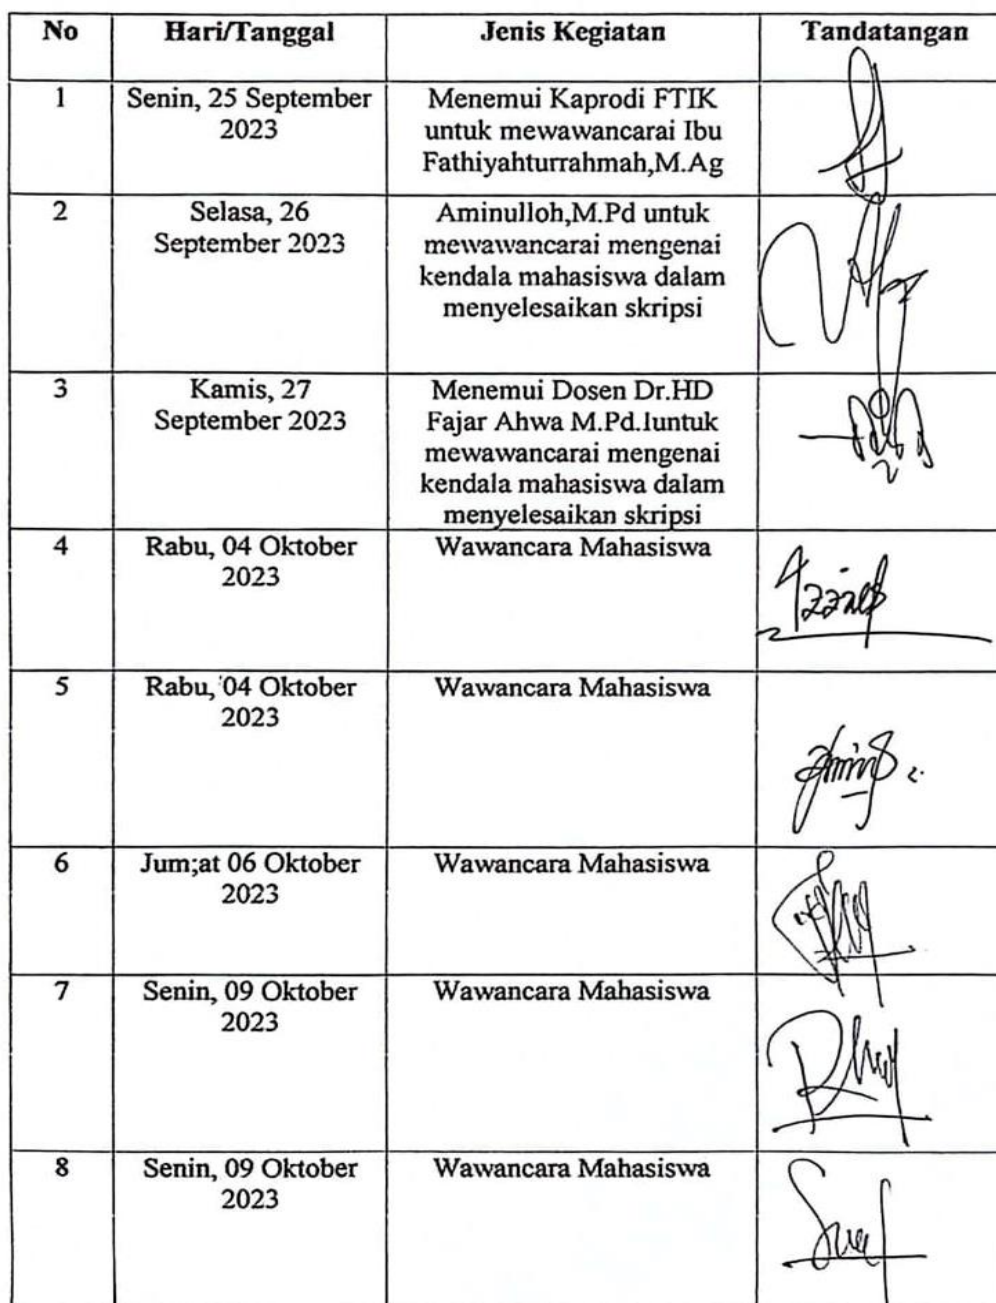 No Hari/Tanggal Jenis Kegiatan Tandatangan
1 Senin, 25 September Menemui Kaprodi FTIK
2023 untuk mewawancarai Ibu
Fathiyahturrahmah,M.Ag
2 Selasa, 26 Aminulloh,M.Pd untuk
September 2023 mewawancarai mengenai
kendala mahasiswa dalam
menyelesaikan skripsi
3 Kamis, 27 Menemui Dosen Dr.HD
September 2023 Fajar Ahwa M.Pd.Iuntuk
mewawancarai mengenai
kendala mahasiswa dalam
menyelesaikan skripsi
4 Rabu, 04 Oktober Wawancara Mahasiswa
2023
5 Rabu, 04 Oktober Wawancara Mahasiswa
2023
6 Jum;at 06 Oktober Wawancara Mahasiswa
2023
7 Senin, 09 Oktober Wawancara Mahasiswa
2023
8 Senin, 09 Oktober Wawancara Mahasiswa
2023